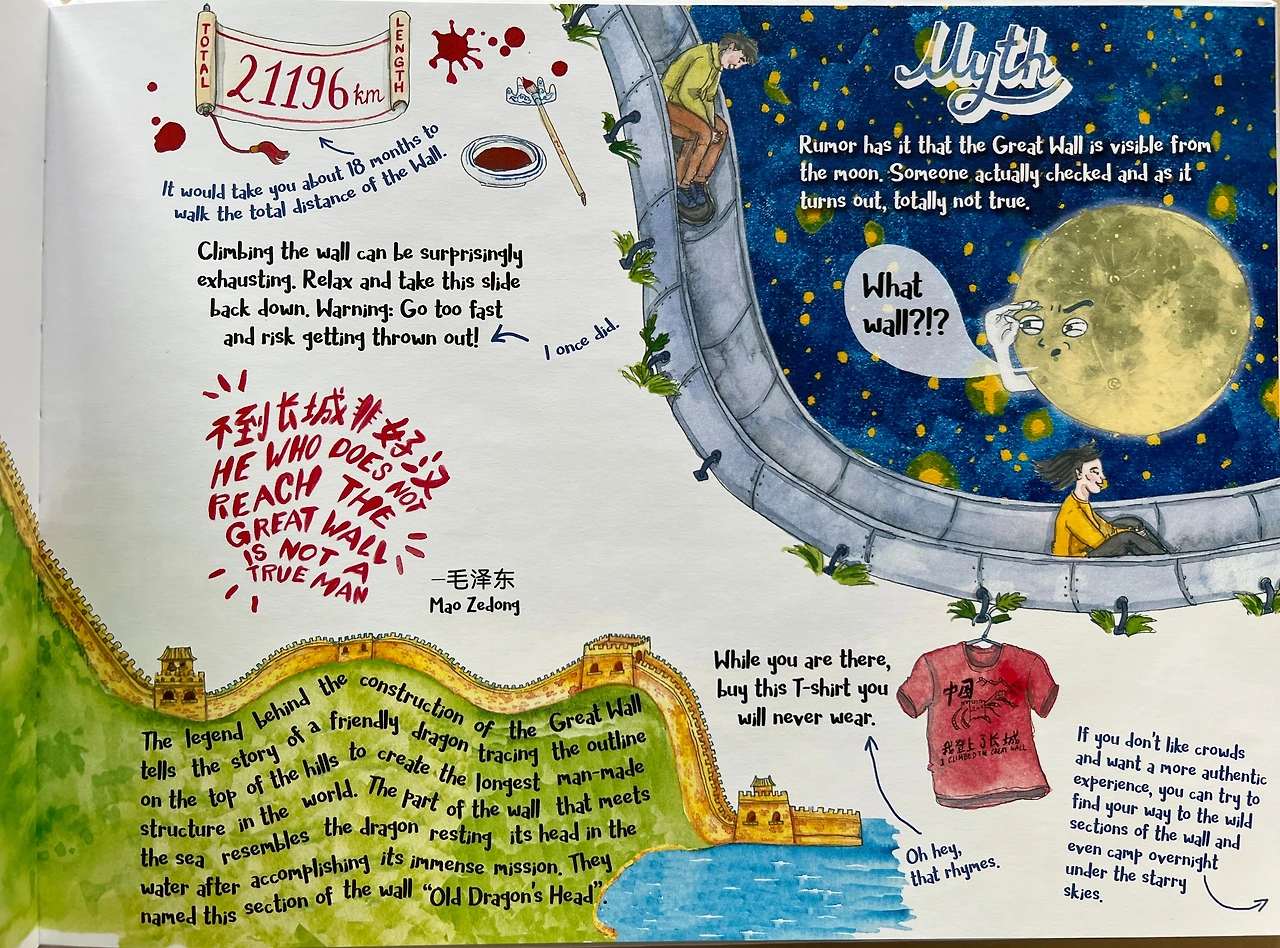 TOTAL
21196 km
LENGTH
It would take you about 18 months to
walk the total distance of the Wall.
Climbing the wall can be surprisingly
exhausting. Relax and take this slide
back down. Warning: Go too fast
and risk getting thrown out!
I once did.
不到长城非好汉
HE WHO DOES NOT
REACH THE
GREAT WALL
IS NOT A
TRUE MAN
—毛泽东
Mao Zedong
Myth
Rumor has it that the Great Wall is visible from
the moon. Someone actually checked and as it
turns out, totally not true.
What
wall?!?
The legend behind the construction of the Great Wall
tells the story of a friendly dragon tracing the outline
on the top of the hills to create the longest man-made
structure in the world. The part of the wall that meets
the sea resembles the dragon resting its head in the
water after accomplishing its immense mission. They
named this section of the wall “Old Dragon's Head”.
While you are there,
buy this T-shirt you
will never wear.
中国
我登上了长城
I CLIMBED THE GREAT WALL
Oh hey,
that rhymes.
If you don't like crowds
and want a more authentic
experience, you can try to
find your way to the wild
sections of the wall and
even camp overnight
under the starry
skies.